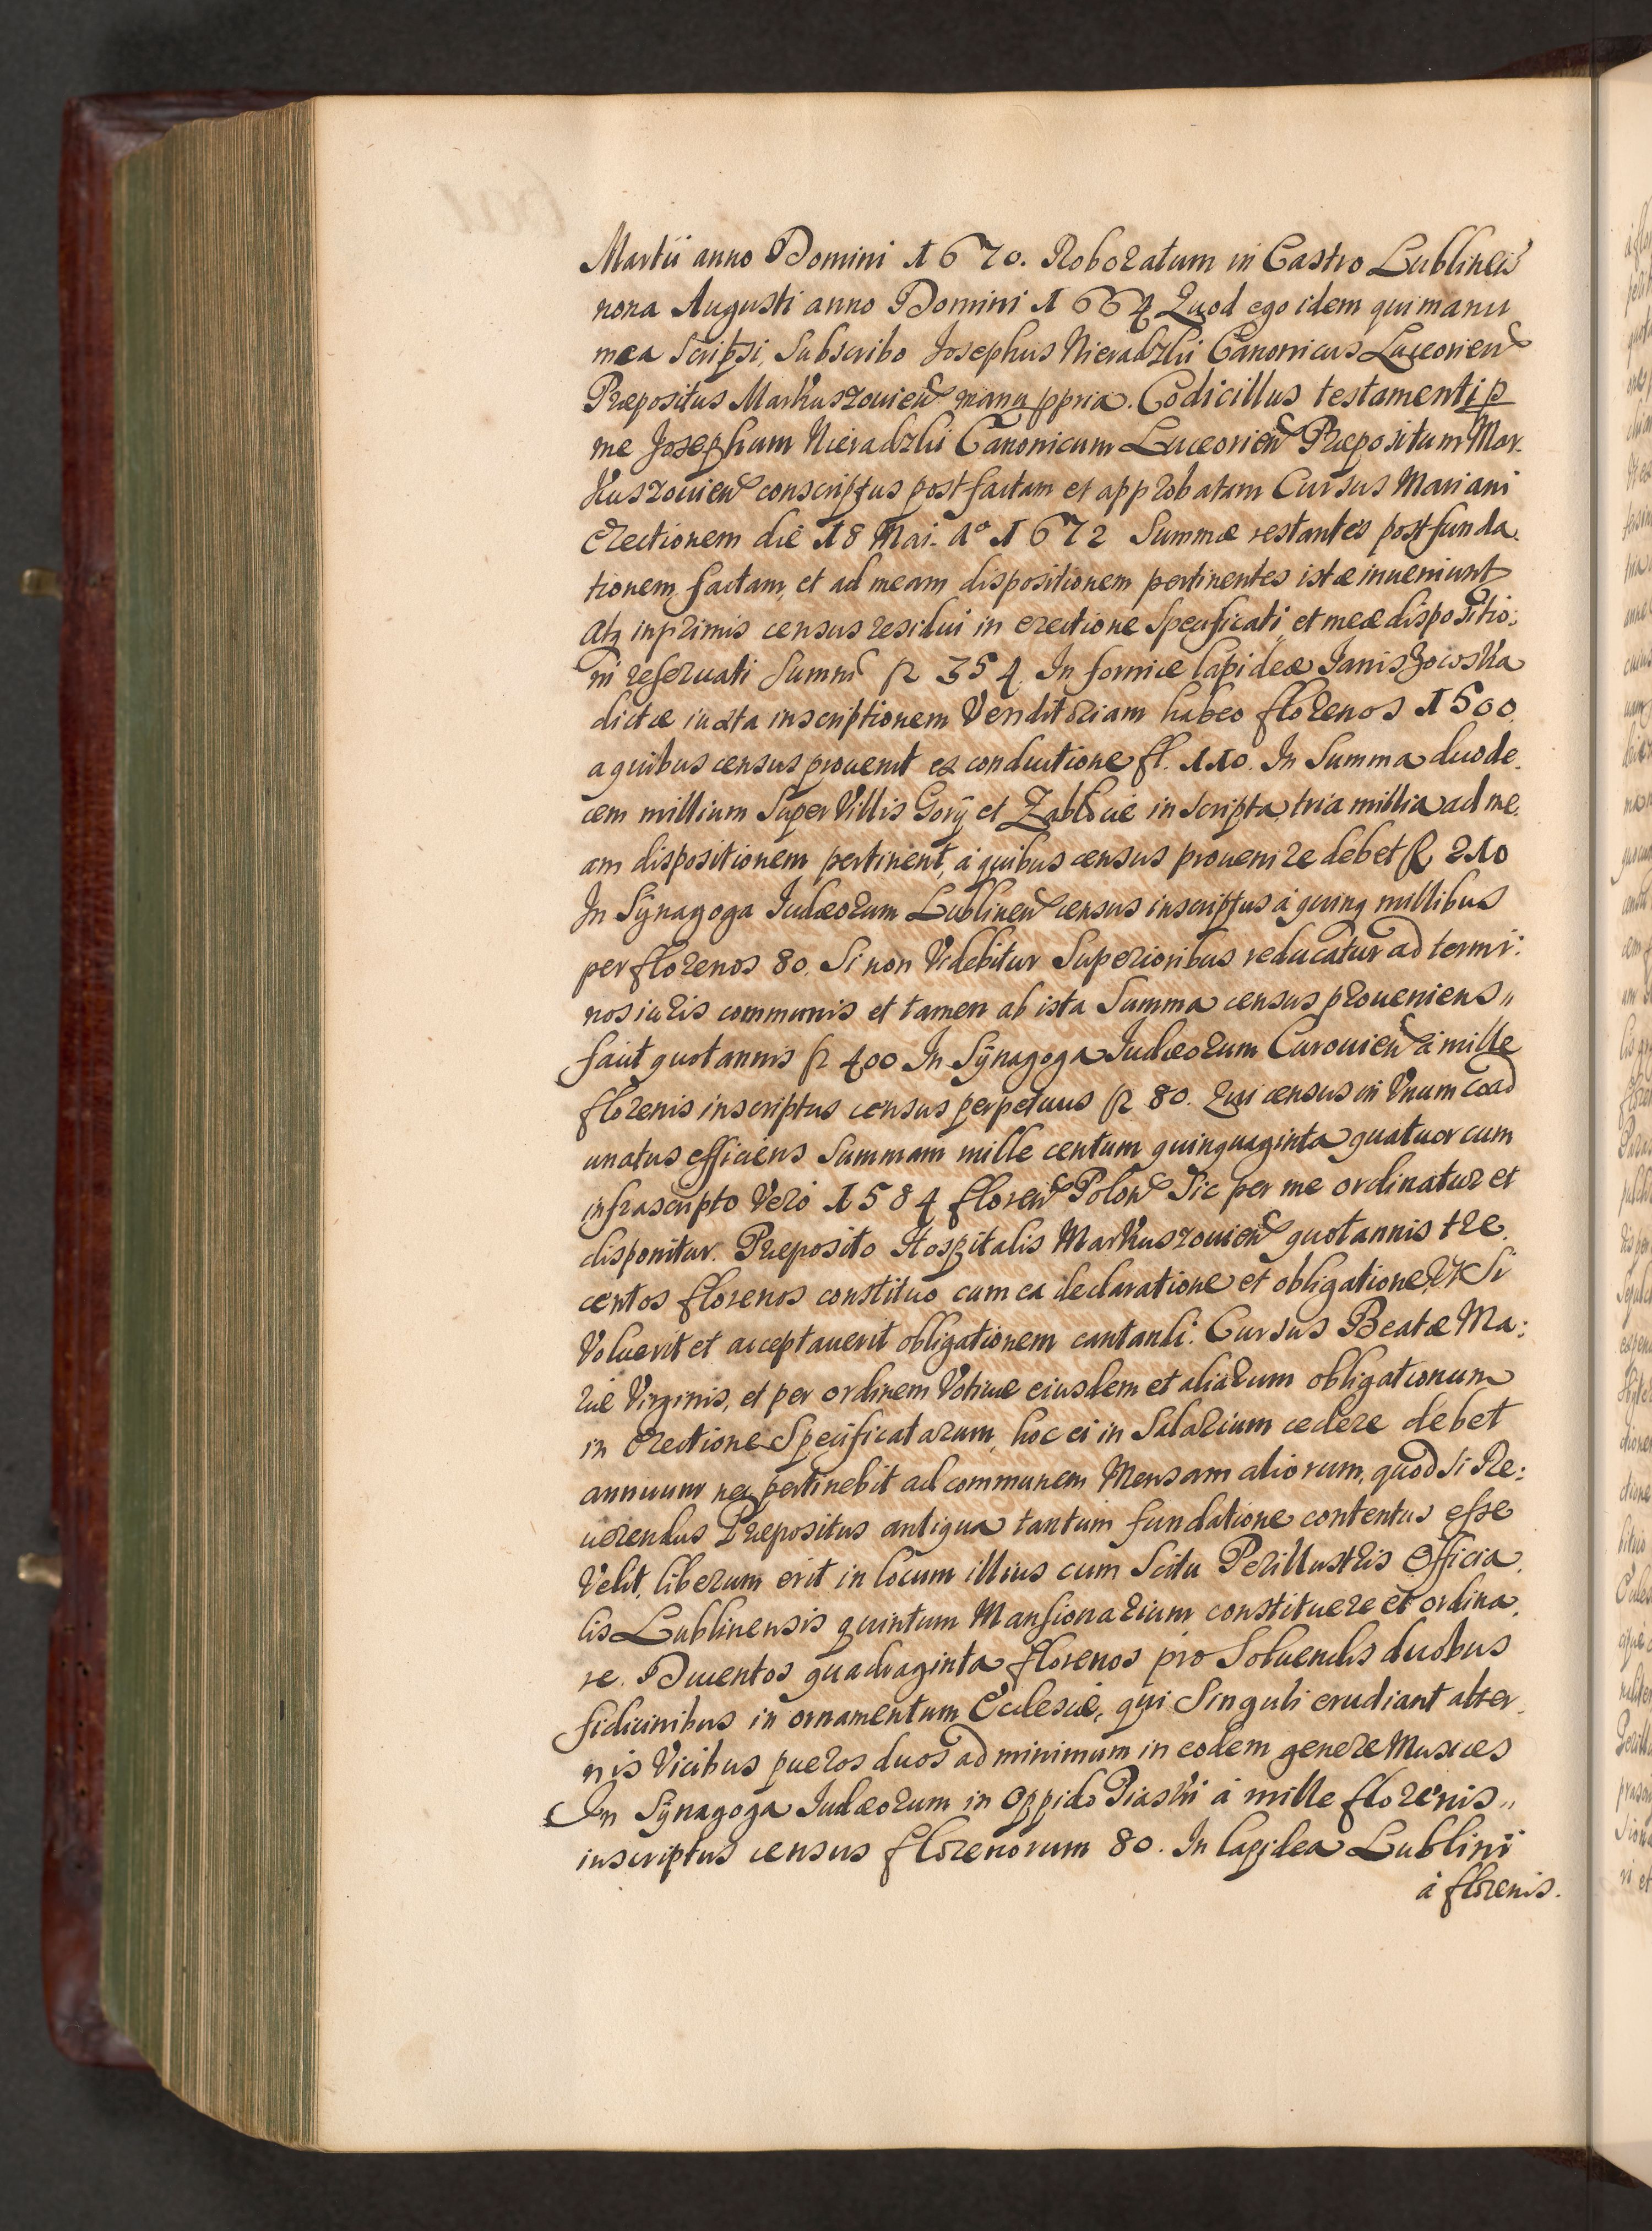 Martii anno Domini 1670. Roboratum in Castro Lublinen
nona Augusti anno Domini 1664 Quod ego idem qui manu
mea scripsi, subscribo Josephus Nieradzki Canonicus Luceorien
Præpositus Markuszouien manu ppria. Codicillus testamenti p
me Josephum Nieradzki Canonicum Luceorien Præpositum Mar-
kuszouien conscriptus post factam et approbatam Cursus Mariani
Erectionem die 18 Mai. Ao 1672 Summæ restantes post funda-
tionem factam, et ad meam dispositionem pertinentes istæ inueniunt
Atq inprimis census residui in erectione specificati, et meæ dispositio:
ni reseruati summ fl 354. In fornice lapideæ Janiszowska
dictæ iuxta inscriptionem Venditoriam habeo florenos 1500.
a quibus census prouenit ex conductione fl. 110. In Summa duode-
cem millium super Villis Gory et Zabłoue inscripta, tria millia ad me-
am dispositionem pertinent, à quibus census prouenire debet fl 210
In Synagoga Iudæorum Lublinen census inscriptus à quinq millibus
per florenos 80. Si non Videbitur Superioribus reducatur ad termi:
nos iuris communis et tamen ab ista Summa census proueniens,,
facit quotannis fl 400 In Synagoga Iudæorum Curouien à mille
florenis inscriptus census perpetuus fl 80. Qui census in Vnum coad
unatus efficiens Summam mille centum quinquaginta quatuor cum
infrascripto Vero 1584 floren Polon Sic per me ordinatur et
disponitur. Præposito Hospitalis Markuszouien quotannis tre-
centos florenos constituo cum ea declaratione et obligatione, vt Si
Voluerit et acceptauerit obligationem cantandi. Cursus Beatæ Ma:
riæ Virginis, et per ordinem Votiuæ eiusdem et aliarum obligationum
in Erectione Specificatarum, hoc ei in Salarium cedere debet
annuum nec pertinebit ad communem Mensam aliorum, quod si Re:
uerendus Præpositus antiqua tantum fundatione contentus esse
Velit, liberum erit in locum illius cum Scitu Perillustris Officia-
lis Lublinensis quintum Mansionarium constituere et ordina-
re. Ducentos quadraginta florenos pro Soluendis duobus
fidicinibus in ornamentum Ecclesiæ, qui Singuli erudiant alter-
nis Vicibus pueros duos ad minimum in eodem genere Musices
In Synagoga Iudæorum in Oppido Piaski à mille florenis,,
inscriptus census florenorum 80. In lapidea Lublini
à florenis.